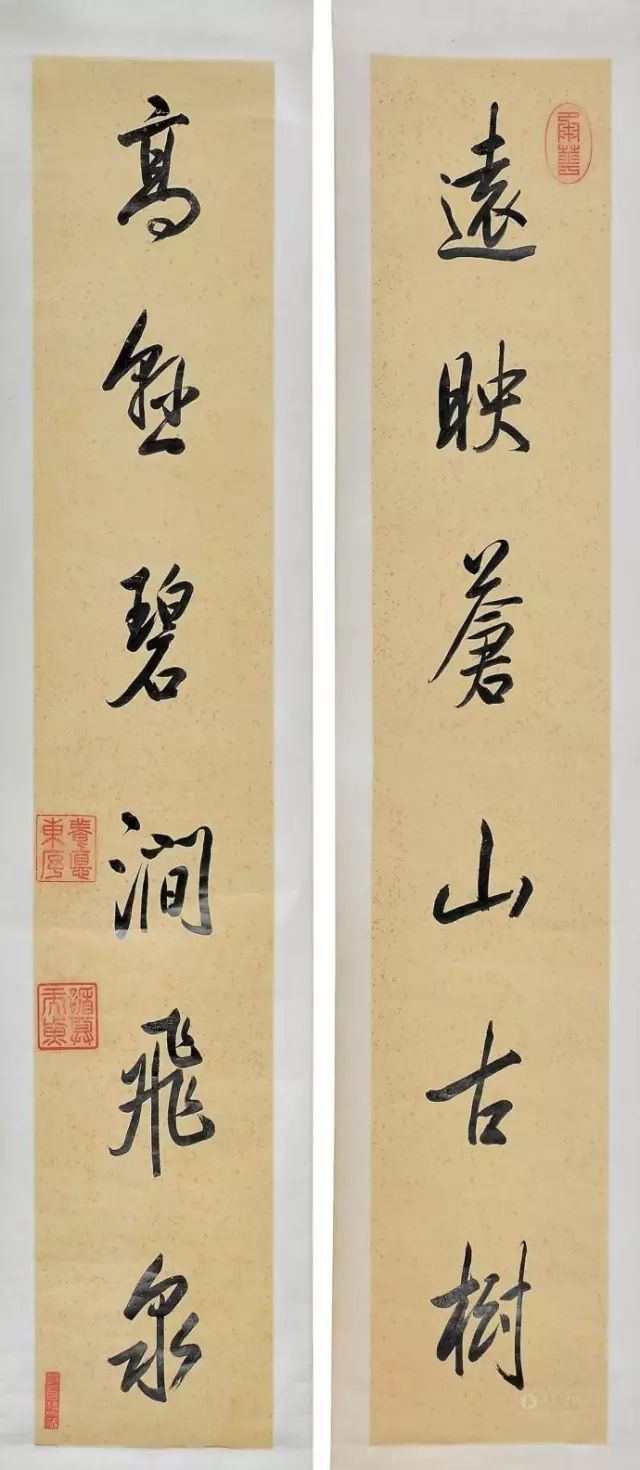 遠映蒼山古樹
高懸碧澗飛泉